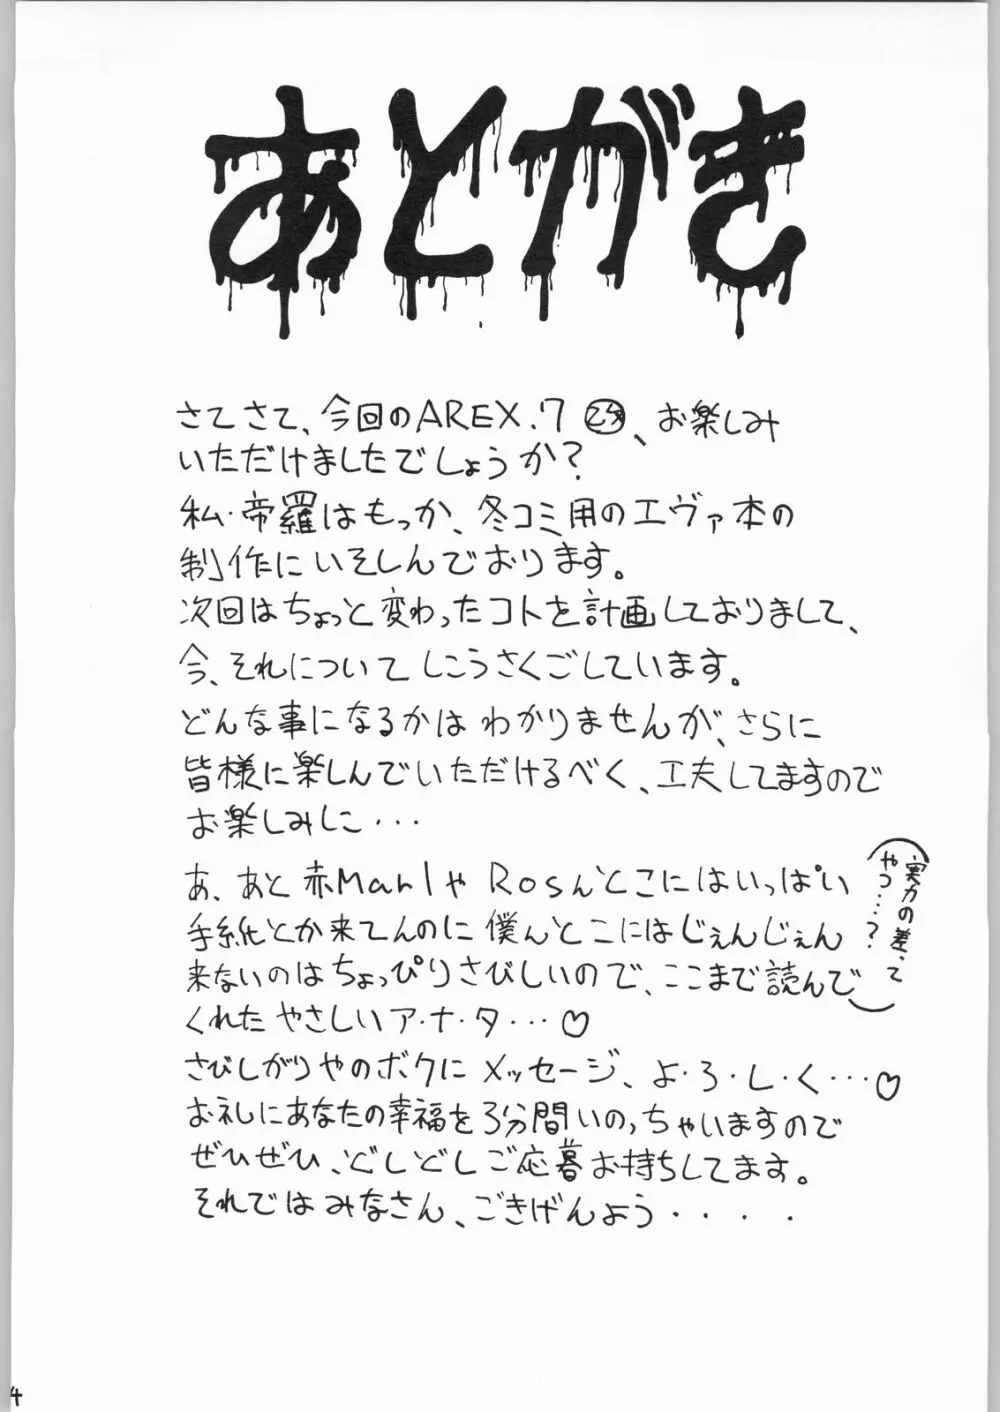 あとがき
さてさて、今回のAREX.7、お楽しみ
いただけましたでしょうか?
私・帝羅はもっか、冬コミ用のエヴァ本の
制作にいそしんでおります。
次回はちょっと変わったコトを計画しておりまして、
今、それについてしこうさくごしています。
どんな事になるかはわかりませんが、さらに
皆様に楽しんでいただけるべく、工夫してますので
お楽しみに・・・
あ、あと赤MarlやRosんとこにはいっぱい
手紙とか来てんのに僕んとこにはじぇんじぇん
来ないのはちょっぴりさびしいので、ここまで読んで
くれたやさしいア・ナ・タ・・・♡
さびしがりやのボクにメッセージ、よ・ろ・し・く・・・♡
お礼にあなたの幸福を3分間いのっちゃいますので
ぜひぜひ、どしどしご応募お持ちしてます。
それではみなさん、ごきげんよう・・・・
(実力の差って
やつ…?)
4